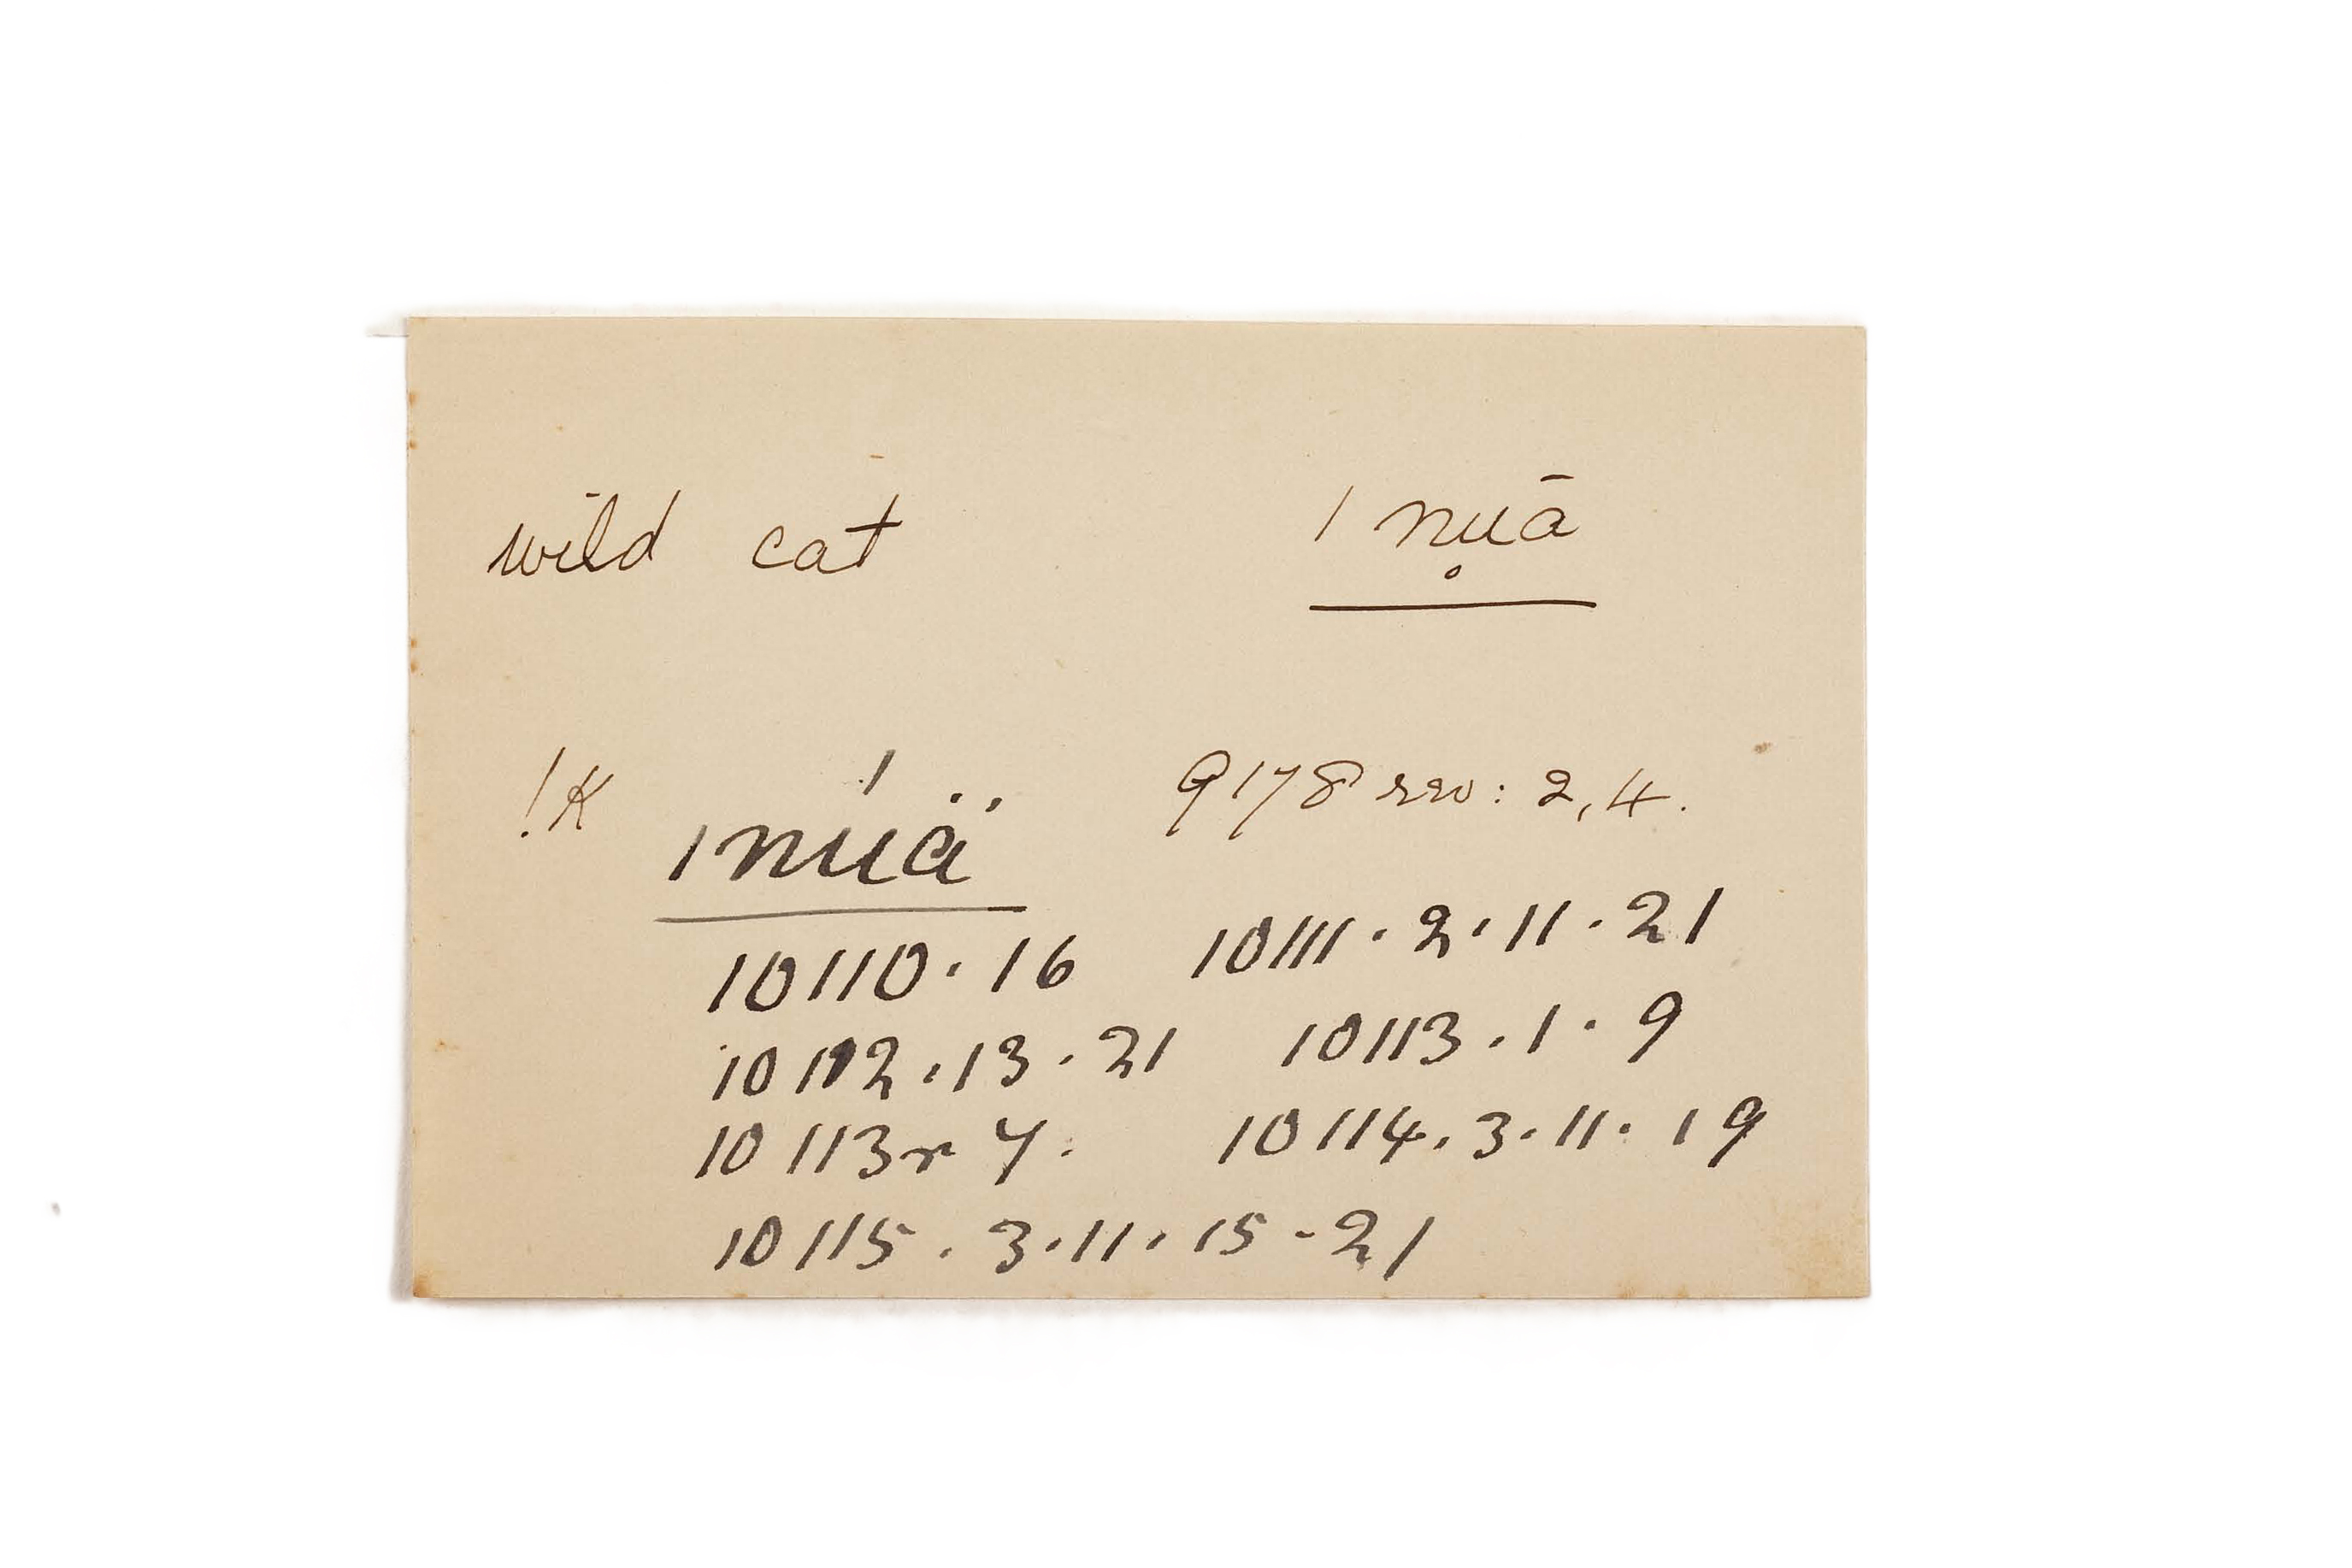 wild cat ǀnu̥ā
!K 9178 rev: 2,4.
ǀnúä
10110.16 10111.2.11.21
10112.13.21 10113.1.9
10113r 7. 10114.3.11.19
10115.3.11.15-21